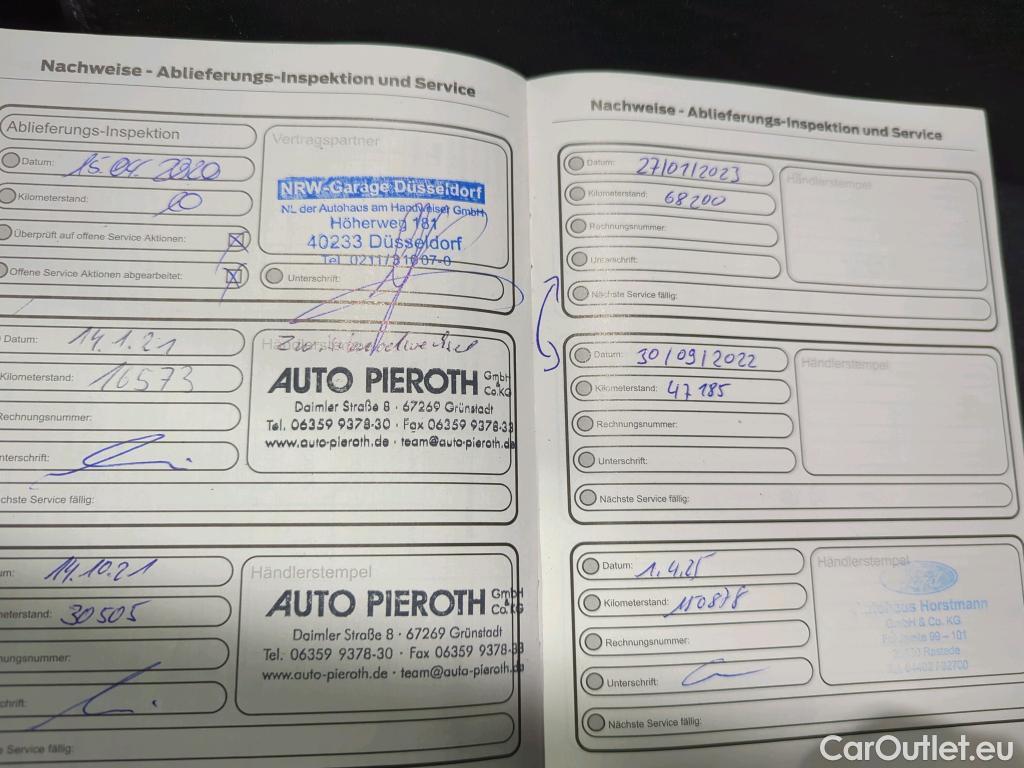 Nachweise - Ablieferungs-Inspektion und Service
Ablieferungs-Inspektion
Vertragspartner
Datum: 15.04.2020
Kilometerstand:
Überprüft auf offene Service Aktionen:
Offene Service Aktionen abgearbeitet:
NRW-Garage Düsseldorf
NL der Autohaus am Handweiser GmbH
Höherweg 181
40233 Düsseldorf
Tel. 0211/
Unterschrift:
Datum: 14.1.21
Kilometerstand: 16573
Rechnungsnummer:
Unterschrift:
Nächste Service fällig:
AUTO PIEROTH GmbH & Co.KG
Daimler Straße 8 · 67269 Grünstadt
Tel. 06359 9378-30 · Fax 06359 9378-33
www.auto-pieroth.de · team@auto-pieroth.de
14.10.21
30505
Händlerstempel
AUTO PIEROTH GmbH & Co.KG
Daimler Straße 8 · 67269 Grünstadt
Tel. 06359 9378-30 · Fax 06359 9378-33
www.auto-pieroth.de · team@auto-pieroth.de
Service fällig:
Nachweise - Ablieferungs-Inspektion und Service
Datum: 27/01/2023
Händlerstempel
Kilometerstand: 68200
Rechnungsnummer:
Unterschrift:
Nächste Service fällig:
Datum: 30/09/2022
Händlerstempel
Kilometerstand: 47185
Rechnungsnummer:
Unterschrift:
Nächste Service fällig:
Datum: 1.4.25
Händlerstempel
Kilometerstand: 110878
Rechnungsnummer:
Unterschrift:
Autohaus Horstmann
GmbH & Co. KG
99 - 101
Rastede
Nächste Service fällig:
CarOutlet.eu